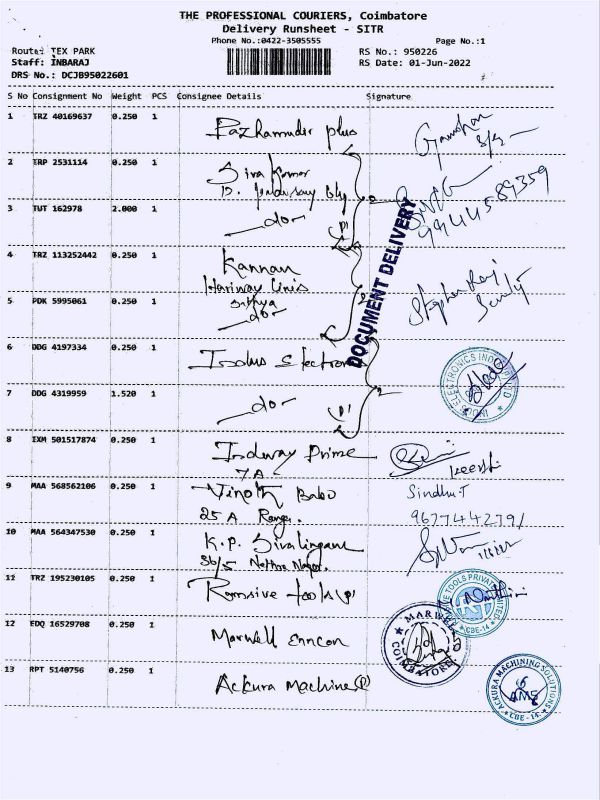 THE PROFESSIONAL COURIERS, Coimbatore
Delivery Runsheet - SITR
Phone No.:0422-3505555
Page No.:1
Route: TEX PARK
RS No.: 950226
Staff: INBARAJ
RS Date: 01-Jun-2022
DRS No.: DCJB95022601
S No Consignment No Weight PCS Consignee Details Signature
1 TRZ 40169637 0.250 1 Pazhamudir plus
2 ERP 2531114 0.250 1 Siva Kumar
3 TUT 162978 2.000 1 do
9944589359
4 TRZ 113252442 0.250 1 Kannan
Hariway Linis
5 PDK 5995061 0.250 1 Sithya
do
DOCUMENT DELIVERY
6 DDG 4197334 0.250 1 Indus Electroni
7 DDG 4319959 1.520 1 do
ELECTRONICS INDIA
8 IXM 501517874 0.250 1 Indway Prime
7A
Keerthi
9 MAA 568562106 0.250 1 Vinoth Babo
25 A Ranga.
Sindhu.T
9677442791
10 MAA 564347530 0.250 1 K.P. Sivalingam
36/5 Nethra Nagar.
11 TRZ 195230105 0.250 1 tools
TOOLS PRIVATE LIMITED
CBE-14
12 EDQ 16529708 0.250 1 Marwell Enncon
MARWELL
COIMBATORE
13 RPT 5140756 0.250 1 Ackura Machine
ACKURA MACHINING SOLUTIONS
AMS
CBE - 14